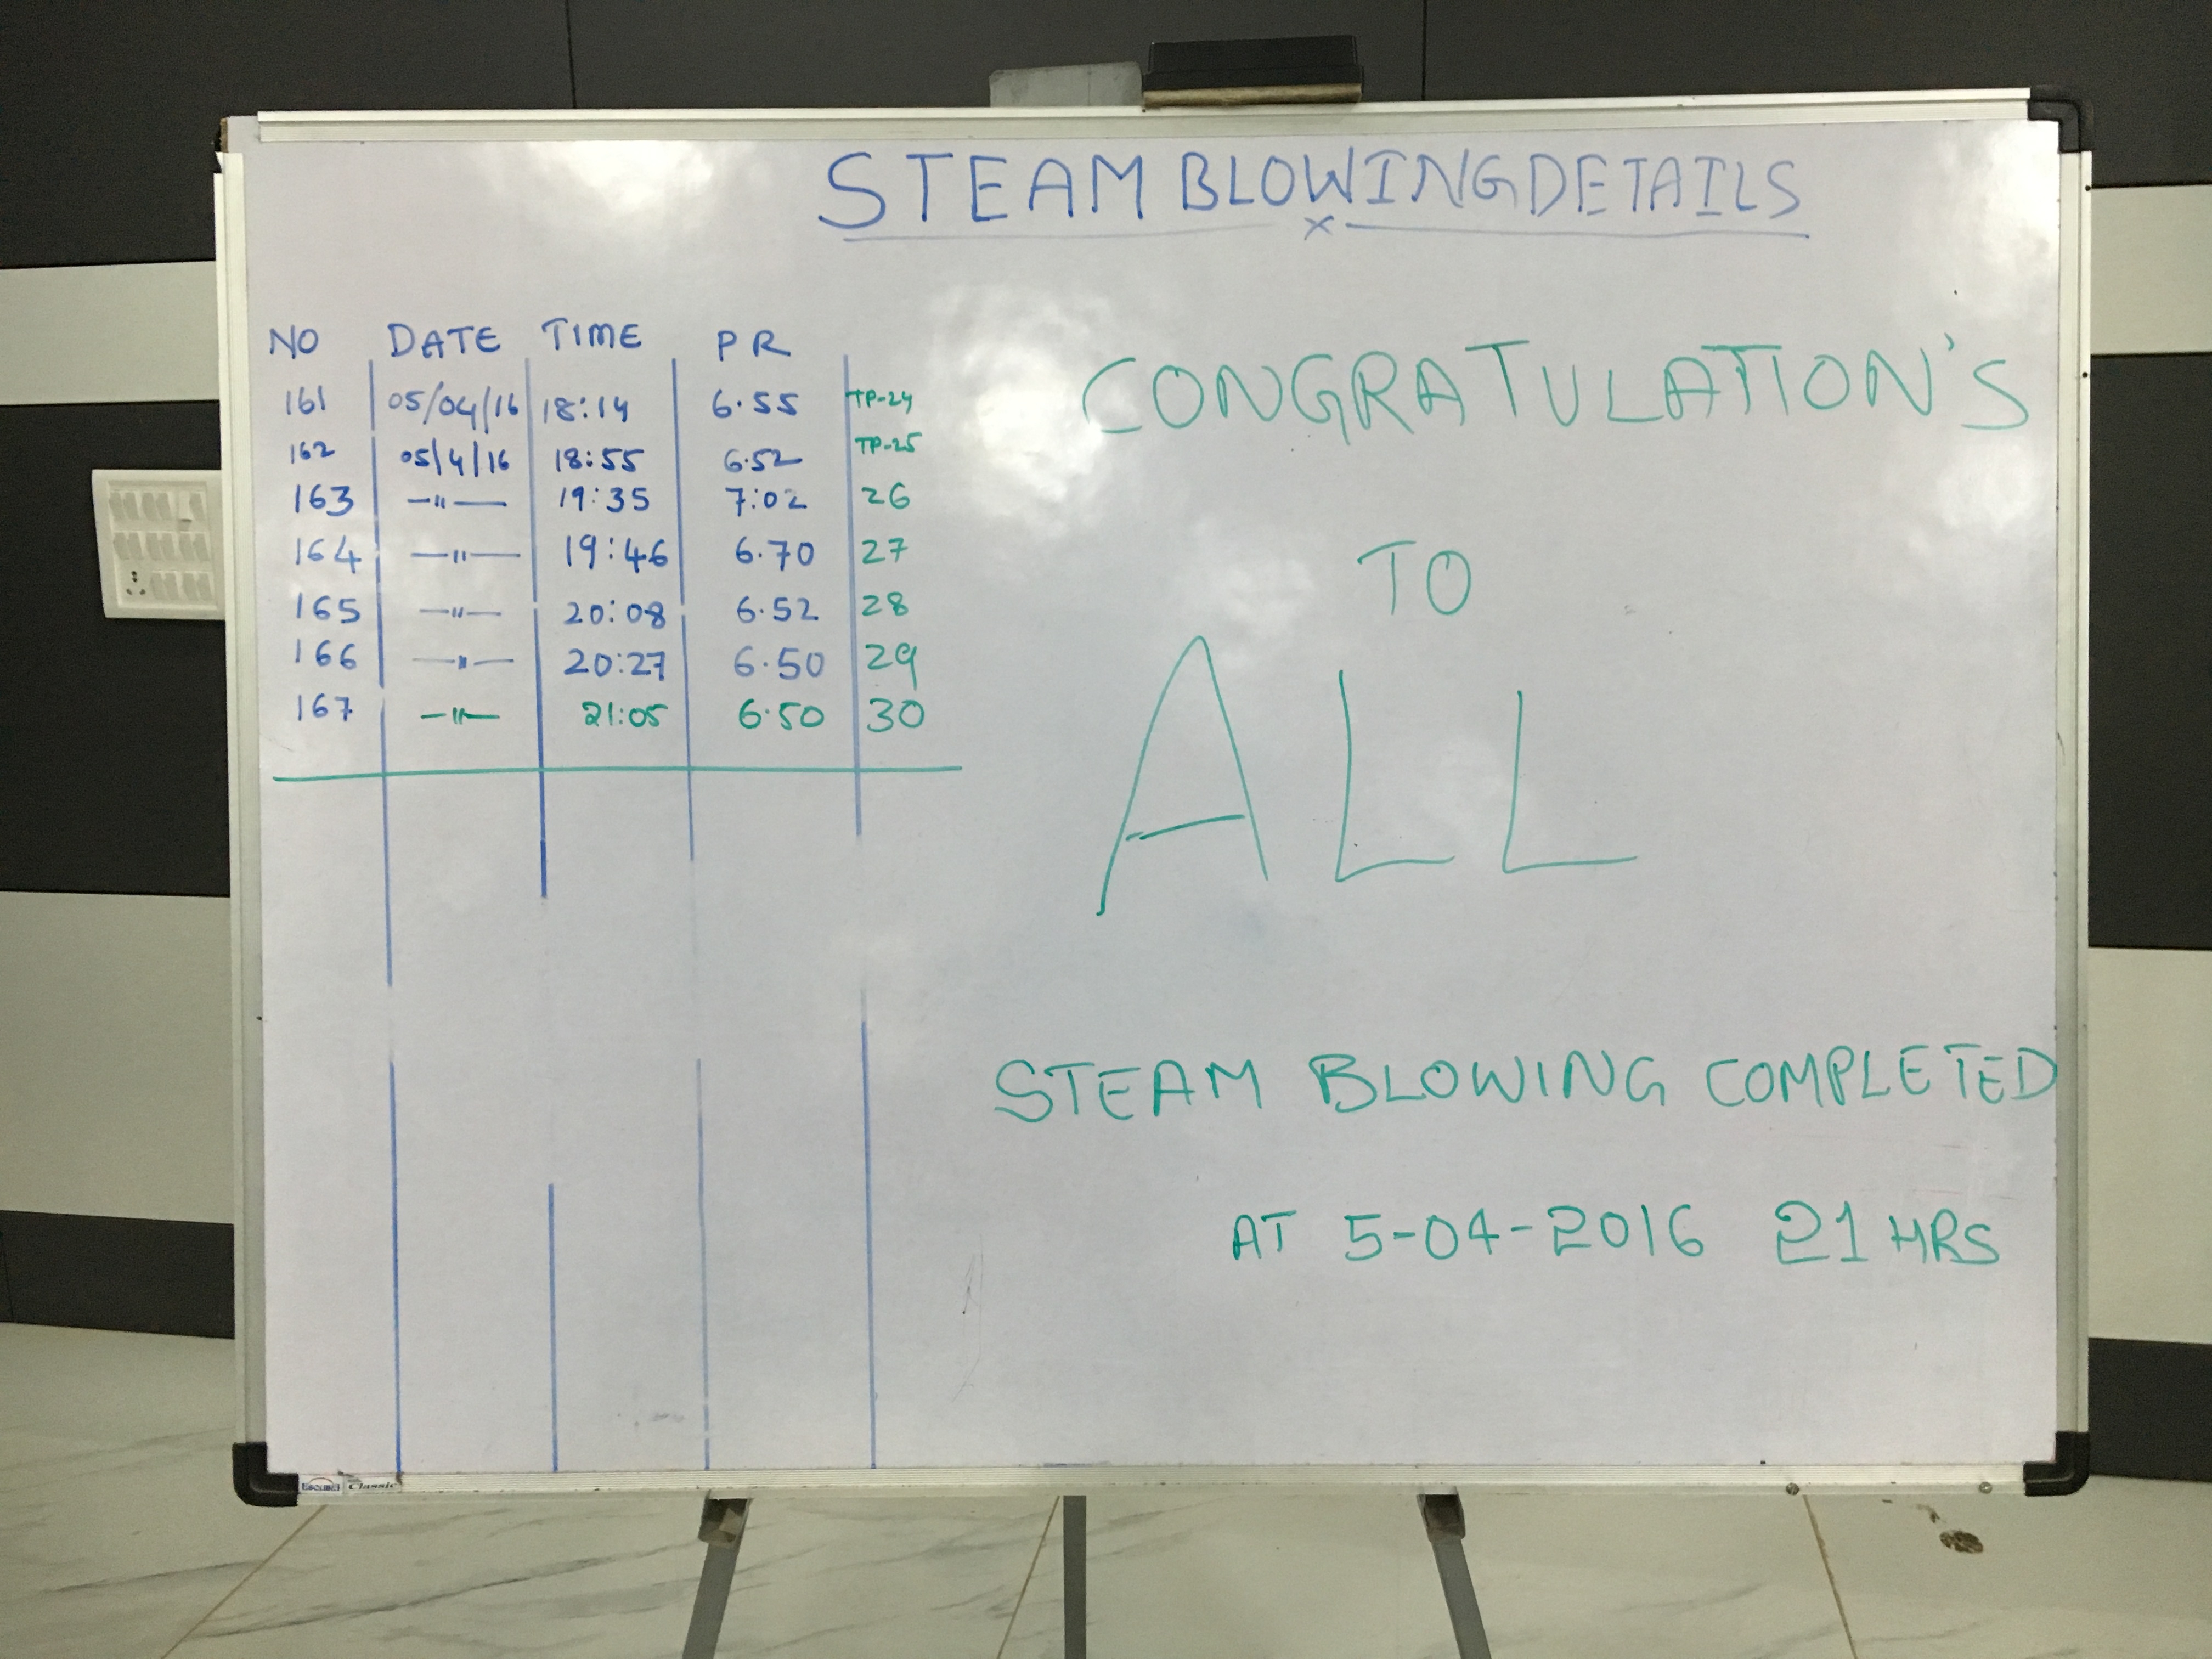 STEAM BLOWING DETAILS
x
NO DATE TIME PR
161 05/04/16 18:14 6.55 TP-24
162 05/4/16 18:55 6.52 TP-25
163 —"— 19:35 7:02 26
164 —"— 19:46 6.70 27
165 —"— 20:08 6.52 28
166 —"— 20:27 6.50 29
167 —"— 21:05 6.50 30
CONGRATULATION'S
TO
ALL
STEAM BLOWING COMPLETED
AT 5-04-2016 21 HRS
Classic